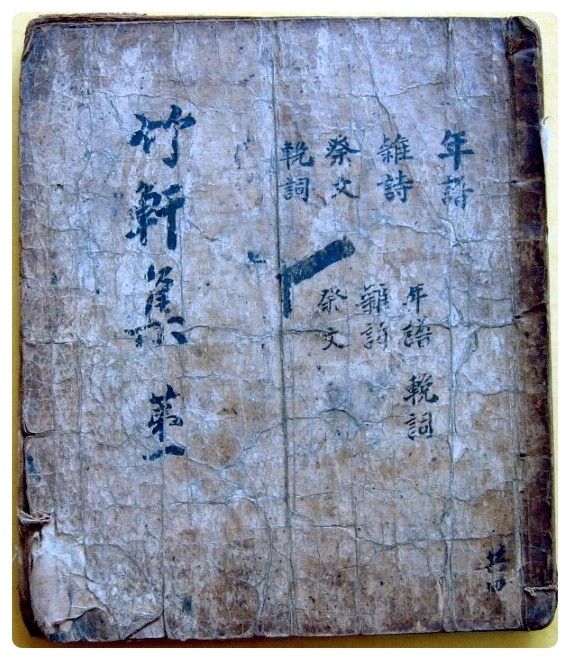 年譜
雜詩
祭文
輓詞
年譜 輓詞
雜詩
祭文
竹軒集 第一
共四